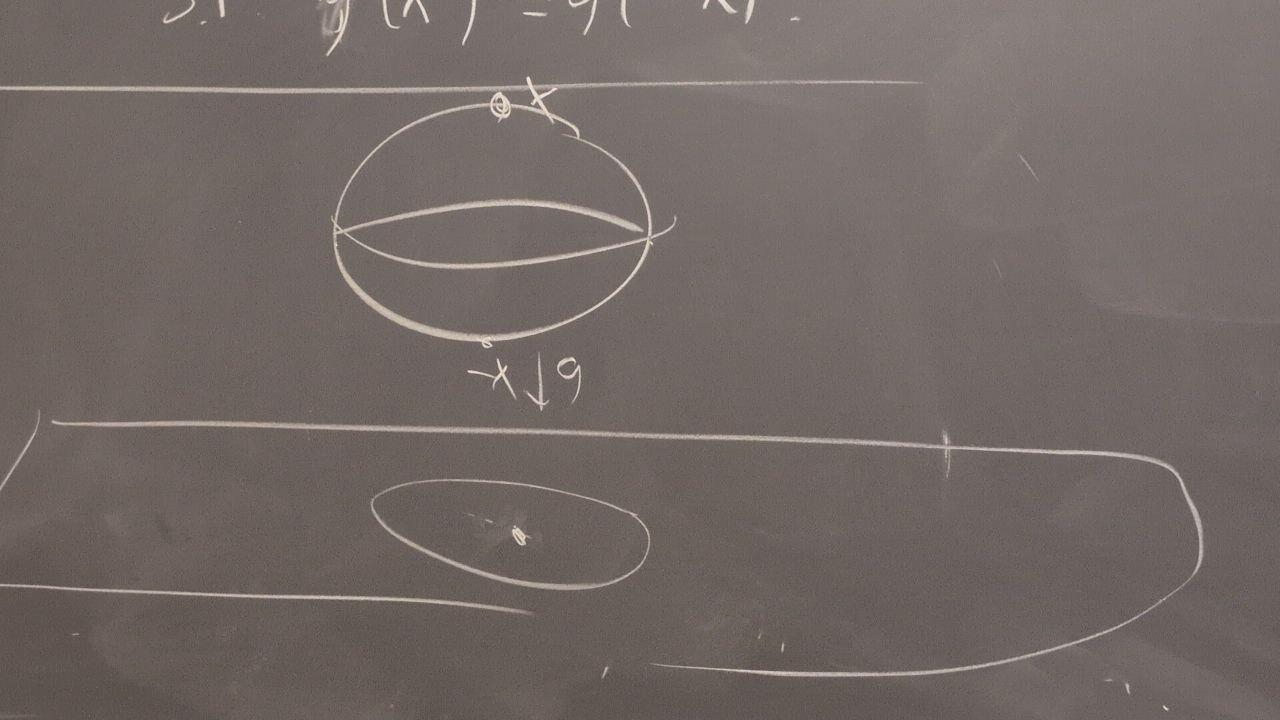 s.t g(x) = g(-x).
x
-x ↓ g